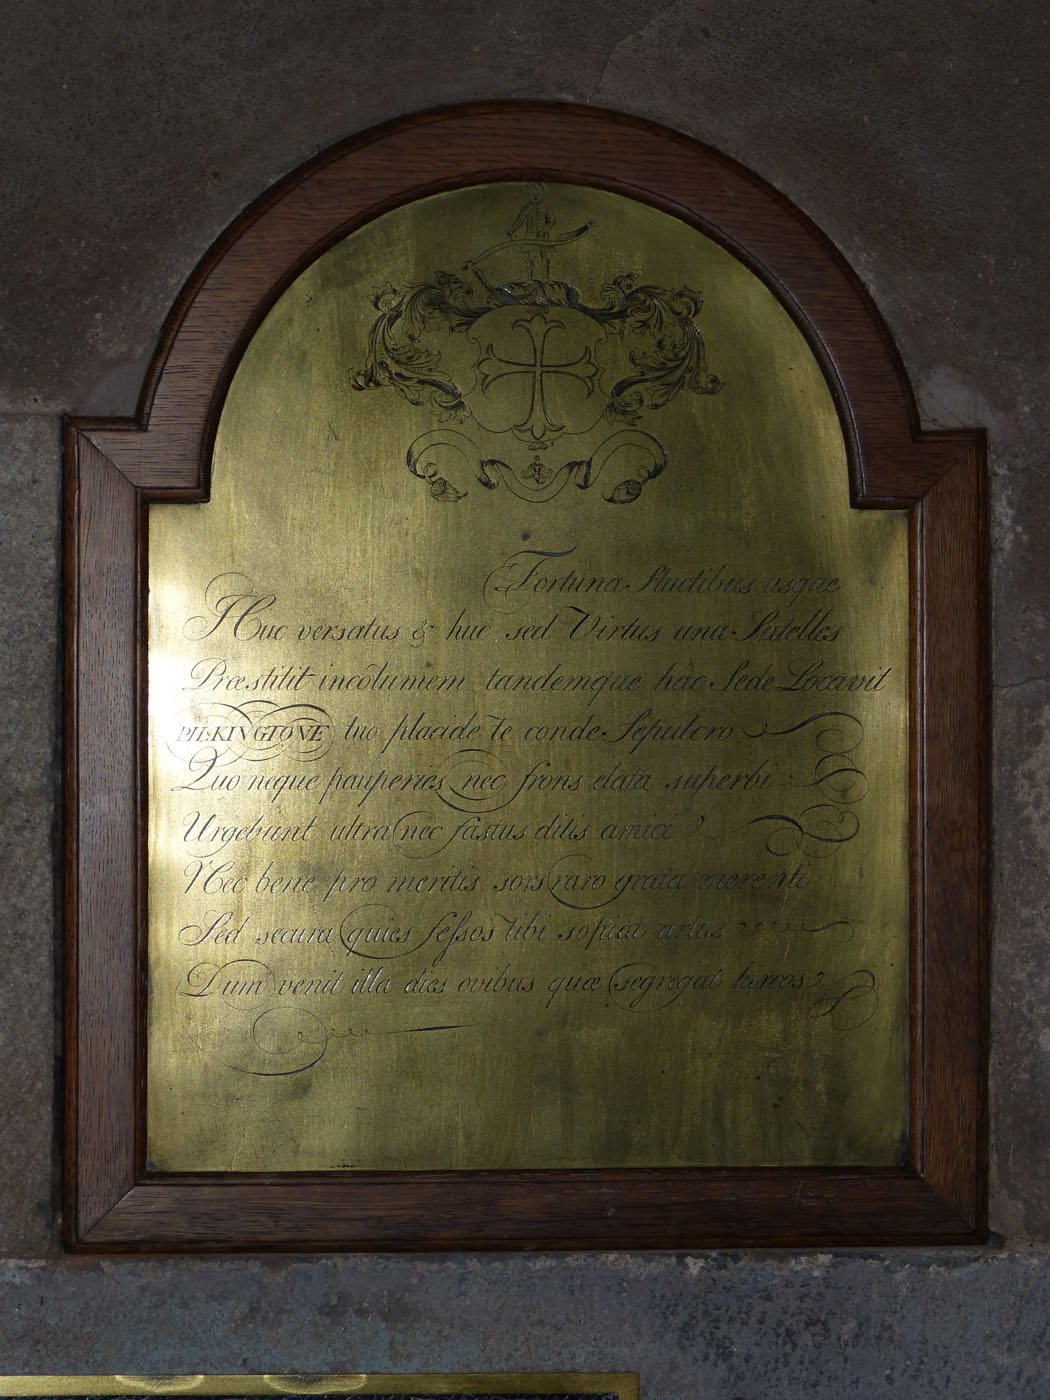 Fortuna fluctibus usque
Huc versatus & huc sed Virtus una Satelles
Præstitit incolumem tandemque hâc Sede Locavit
PILKINGTONE tuo placide te conde Sepulcro
Quo neque pauperies nec frons elata superbi
Urgebunt ultra nec fastus ditis amici
Nec bene pro meritis sors raro grata merenti
Sed secura quies fessos tibi sopiet artus
Dum venit illa dies ovibus quæ segregat hircos